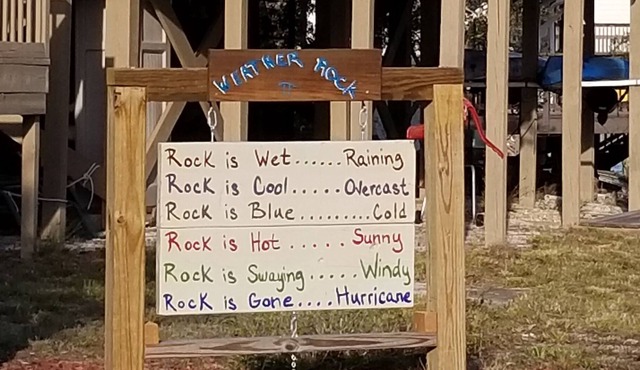 WEATHER ROCK
II
Rock is Wet......Raining
Rock is Cool.....Overcast
Rock is Blue.........Cold
Rock is Hot ..... Sunny
Rock is Swaying.....Windy
Rock is Gone....Hurricane